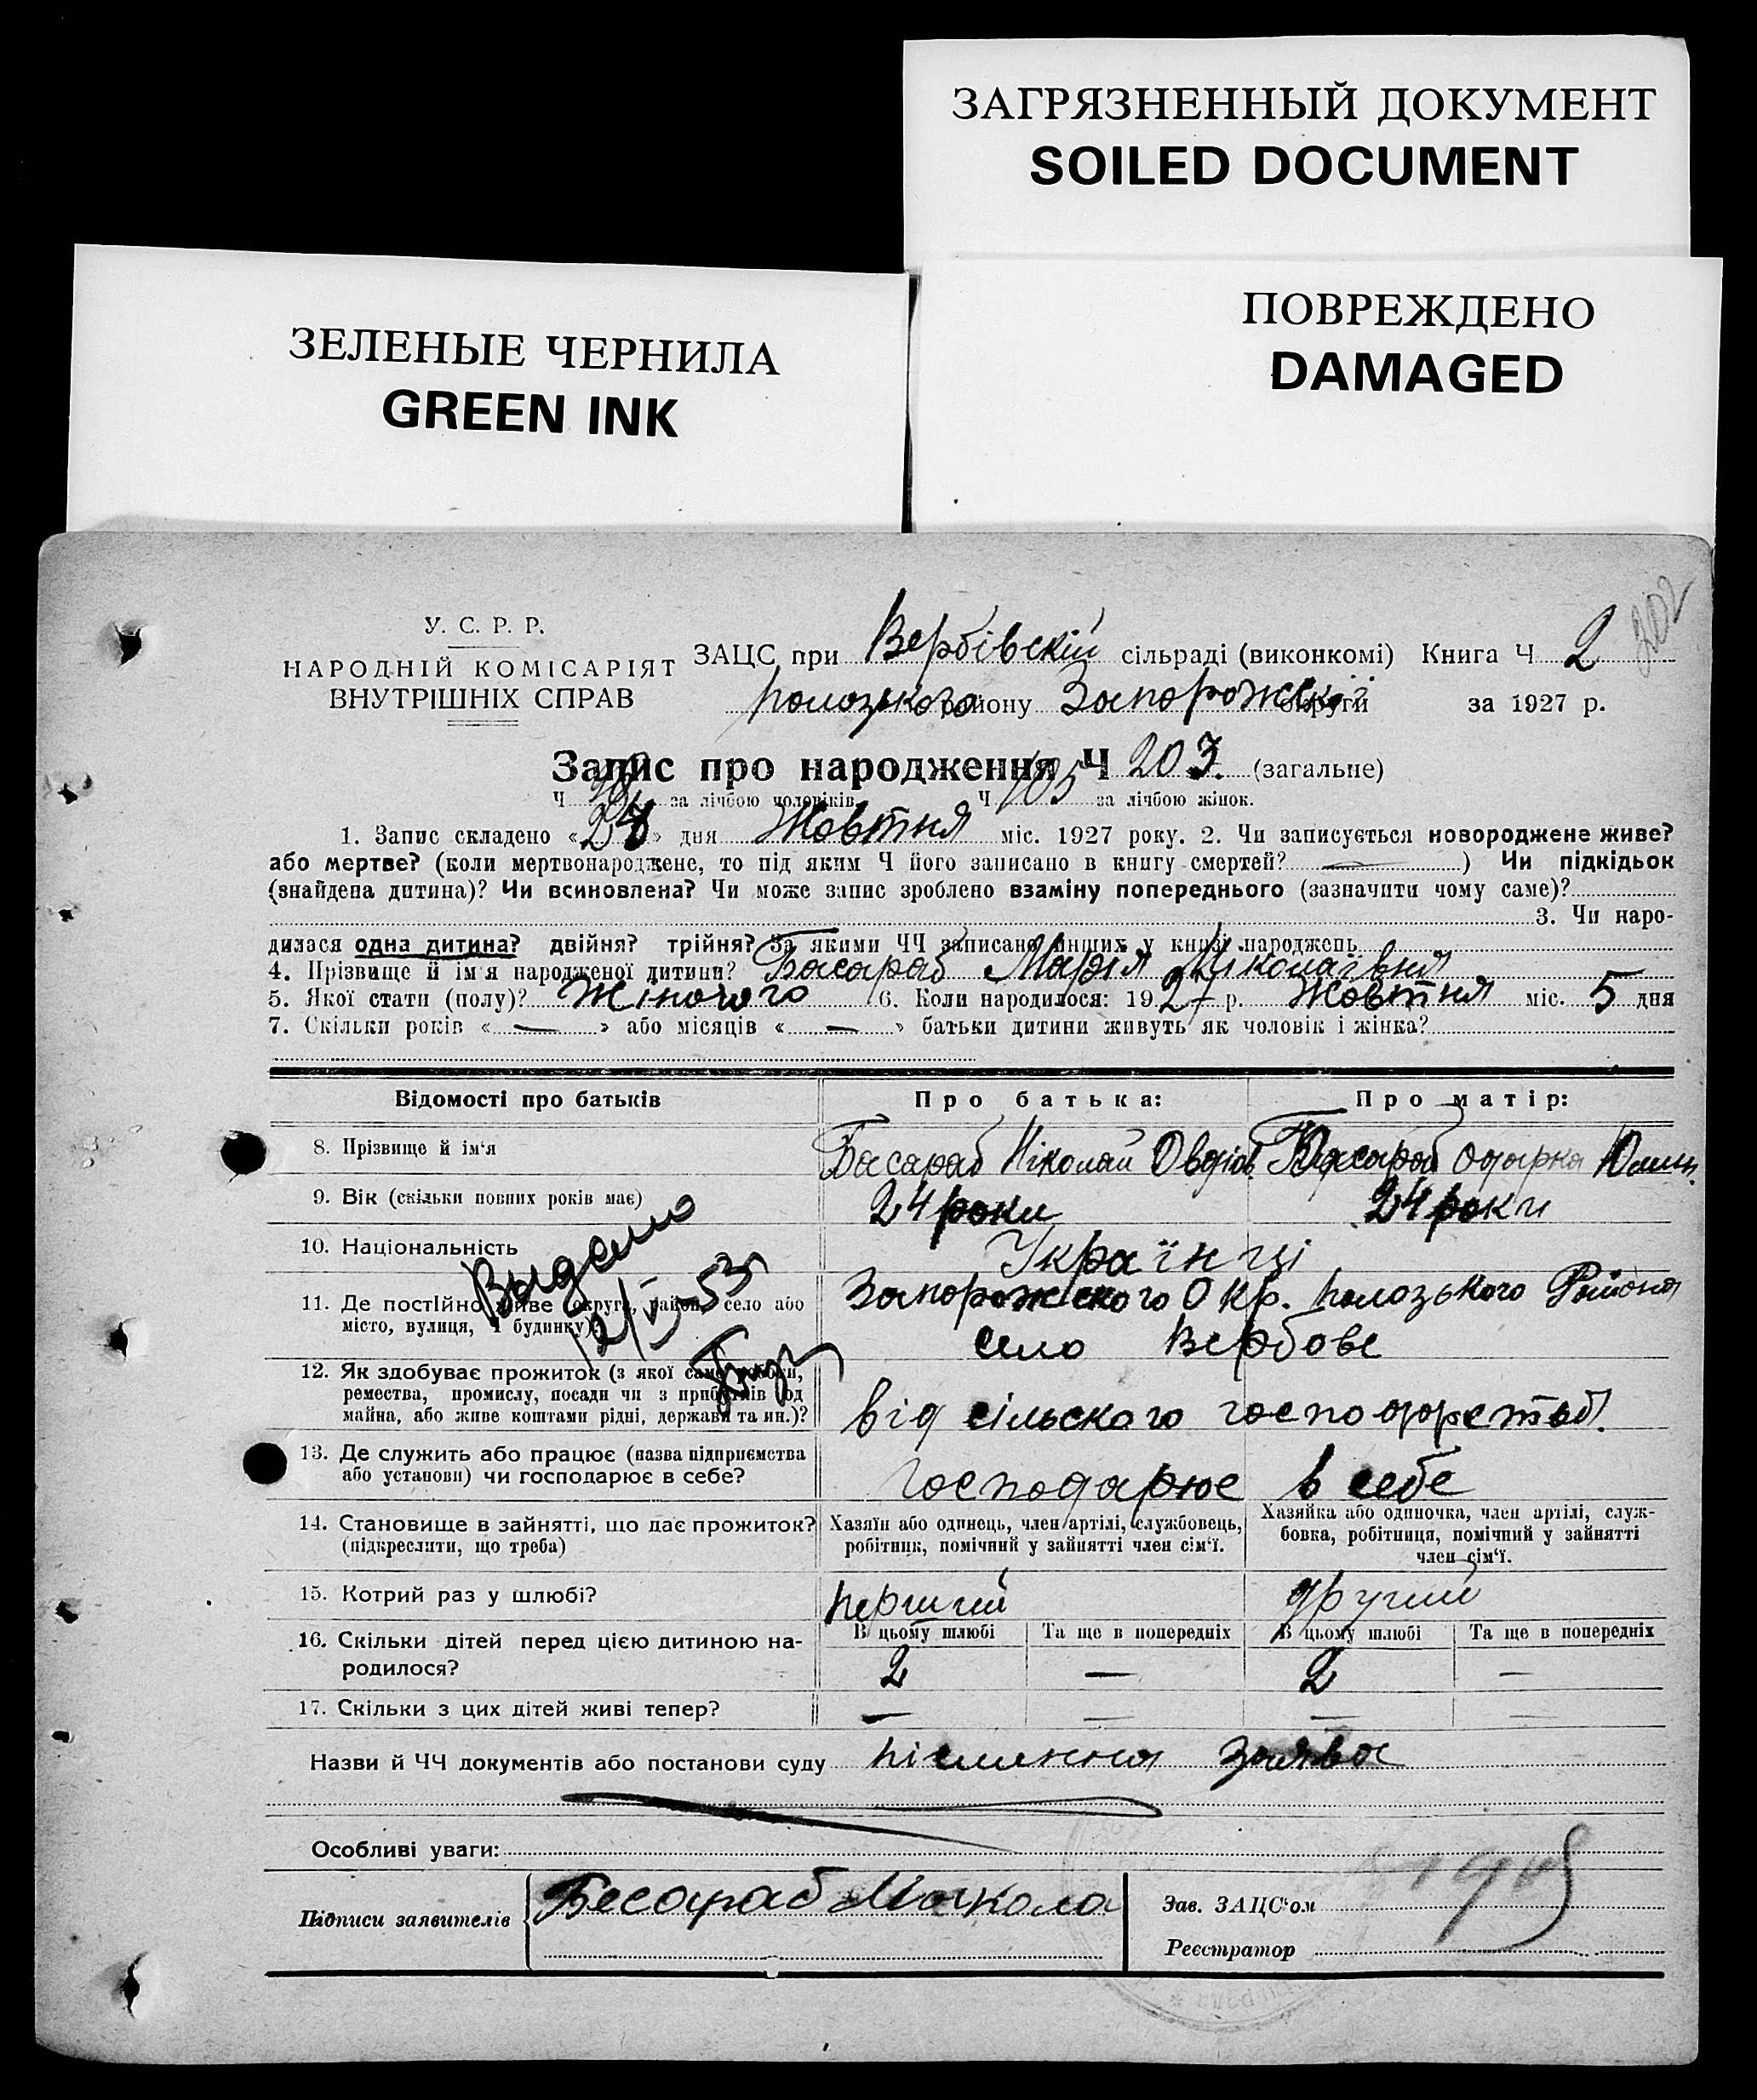 ЗАГРЯЗНЕННЫЙ ДОКУМЕНТ
SOILED DOCUMENT
ЗЕЛЕНЫЕ ЧЕРНИЛА
GREEN INK
ПОВРЕЖДЕНО
DAMAGED
202
У. С. Р. Р.
НАРОДНІЙ КОМІСАРІЯТ
ВНУТРІШНІХ СПРАВ
ЗАЦС при Вербівскій сільраді (виконкомі) Книга Ч 2
Полозького району Запорожскої округи за 1927 р.
Запис про народження Ч 203. (загальне)
Ч 98 за лічбою чоловіків Ч 105 за лічбою жінок.
1. Запис складено « » дня Жовтня міс. 1927 року. 2. Чи записується новороджене живе?
або мертве? (коли мертвонароджене, то під яким Ч його записано в книгу смертей? — ) Чи підкідьок
(знайдена дитина)? Чи всиновлена? Чи може запис зроблено взаміну попереднього (зазначити чому саме)?
3. Чи наро-
дилася одна дитина? двійня? трійня? За якими ЧЧ записано инших у книзі народжень
4. Прізвище й ім'я народженої дитини? Басараб Марія Миколаївня
5. Якої стати (полу)? Жіночого 6. Коли народилося: 1927 р. Жовтня міс. 5 дня
7. Скільки років « — » або місяців « — » батьки дитини живуть як чоловік і жінка?
Відомості про батьків Про батька: Про матір:
8. Прізвище й ім'я Басараб Ніколай Овдіов. Басараб Одарка
9. Вік (скільки повних років має) 24 роки 24 роки
10. Національність Українці
Выдано
12/V-53
11. Де постійно живе (округа, район, село або
місто, вулиця, Ч будинку)?
Запорожского Окр. Полозького Района
село Вербове
12. Як здобуває прожиток (з якої саме роботи,
ремества, промислу, посади чи з прибутків од
майна, або живе коштами рідні, держави та ин.)?
від сільского господарства.
13. Де служить або працює (назва підприємства
або установи) чи господарює в себе?
господарює в себе
14. Становище в зайнятті, що дає прожиток?
(підкреслити, що треба)
Хазяїн або одинець, член артілі, службовець,
робітник, помічний у зайнятті член сім'ї.
Хазяйка або одиночка, член артілі, служ-
бовка, робітниця, помічний у зайнятті
член сім'ї.
15. Котрий раз у шлюбі? перший другий
16. Скільки дітей перед цією дитиною на-
родилося?
В цьому шлюбі Та ще в попередніх В цьому шлюбі Та ще в попередніх
2 — 2 —
17. Скільки з цих дітей живі тепер? — — — —
Назви й ЧЧ документів або постанови суду письмення заява
Особливі уваги:
Підписи заявителів Бесараб Микола
Зав. ЗАЦС'ом
Реєстратор